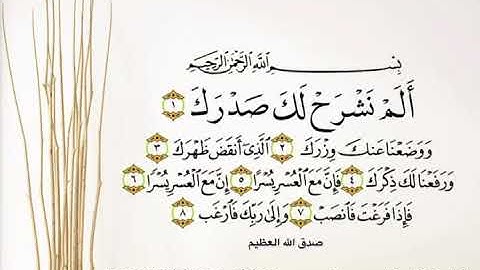 بِسْمِ اللَّهِ الرَّحْمَٰنِ الرَّحِيمِ
أَلَمْ نَشْرَحْ لَكَ صَدْرَكَ ١
وَوَضَعْنَا عَنكَ وِزْرَكَ ٢ الَّذِي أَنقَضَ ظَهْرَكَ ٣
وَرَفَعْنَا لَكَ ذِكْرَكَ ٤ فَإِنَّ مَعَ الْعُسْرِ يُسْرًا ٥ إِنَّ مَعَ الْعُسْرِ يُسْرًا ٦
فَإِذَا فَرَغْتَ فَانصَبْ ٧ وَإِلَىٰ رَبِّكَ فَارْغَب ٨
صدق الله العظيم